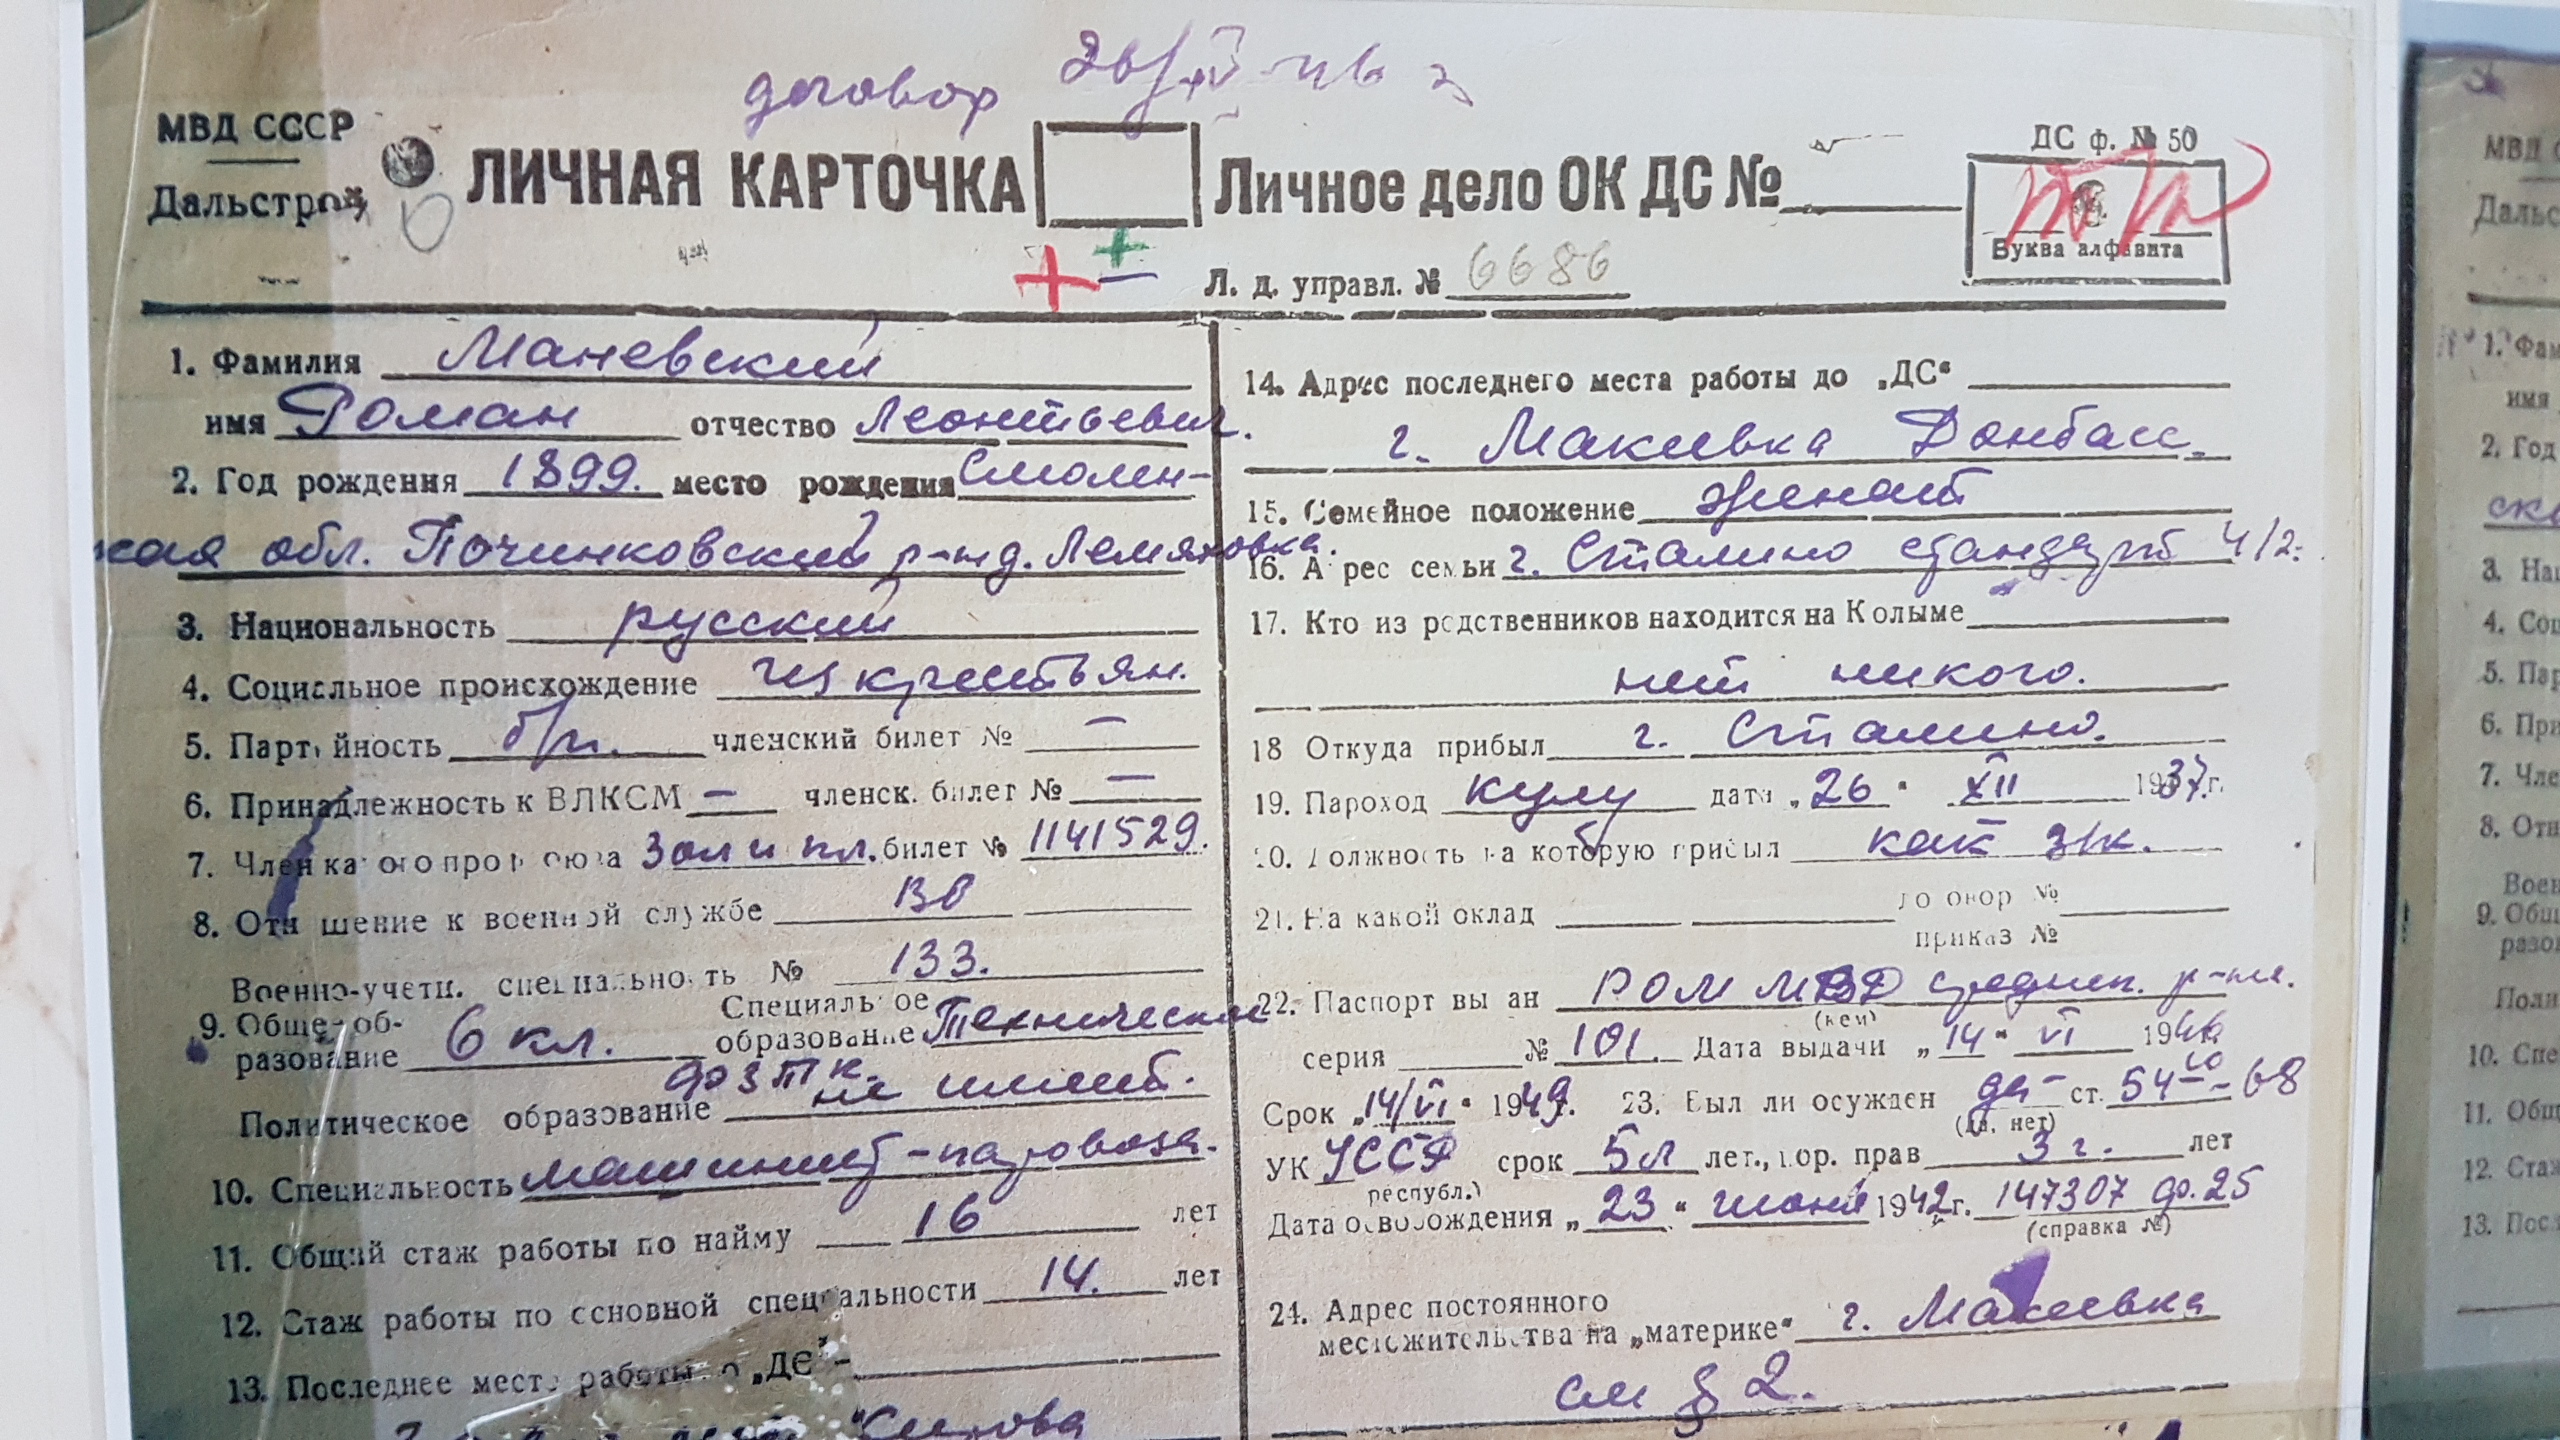 договор
МВД СССР
Дальстрой
ЛИЧНАЯ КАРТОЧКА
Личное дело ОК ДС №
ДС ф. № 50
Буква алфавита
Л. д. управл. № 6686
1. Фамилия Маневский
имя Роман отчество Леонтьевич.
2. Год рождения 1899. место рождения Смолен-
ская обл. Починковский р-н д.
3. Национальность русский
4. Социальное происхождение из крестьян.
5. Партийность б/п. членский билет № —
6. Принадлежность к ВЛКСМ — членск. билет № —
7. Член какого профсоюза Зол и пл. билет № 1141529.
8. Отношение к военной службе в/о
Военно-учетн. специальность № 133.
9. Общее об-
разование 6 кл.
Специальное
образование Техническое
Политическое образование не имеет.
10. Специальность машинист-паровоза.
11. Общий стаж работы по найму 16 лет
12. Стаж работы по основной специальности 14. лет
13. Последнее место работы до „ДС“
Кирова
14. Адрес последнего места работы до „ДС“
г. Макеевка Донбасс.
15. Семейное положение женат
16. Адрес семьи г. Сталино стандарт 4/2.
17. Кто из родственников находится на Колыме
нет никого.
18 Откуда прибыл г. Сталино.
19. Пароход Кулу дата „26“ XII 1937 г.
20. Должность на которую прибыл как з/к.
21. На какой оклад
договор №
приказ №
22. Паспорт выдан РОМ МВД среднек. р-на.
(кем)
серия № 101. Дата выдачи „14“ VI 1946
Срок „14/VI“ 1949 г. 23. Был ли осужден да ст. 54-10-68
(да, нет)
УК УССР срок 5 л лет., пор. прав 3 г. лет
(республ.)
Дата освобождения „23“ июня 1942 г. 147307 ф. 25
(справка №)
24. Адрес постоянного
местожительства на „материке“ г. Макеевка
см § 2.
МВД
Дальс
1. Фам
имя
2. Год
ско
3. На
4. Соц
5. Пар
6. При
7. Чле
8. Отн
Воен
9. Общ
разо
Поли
10. Спе
11. Общ
12. Ста
13. Пос